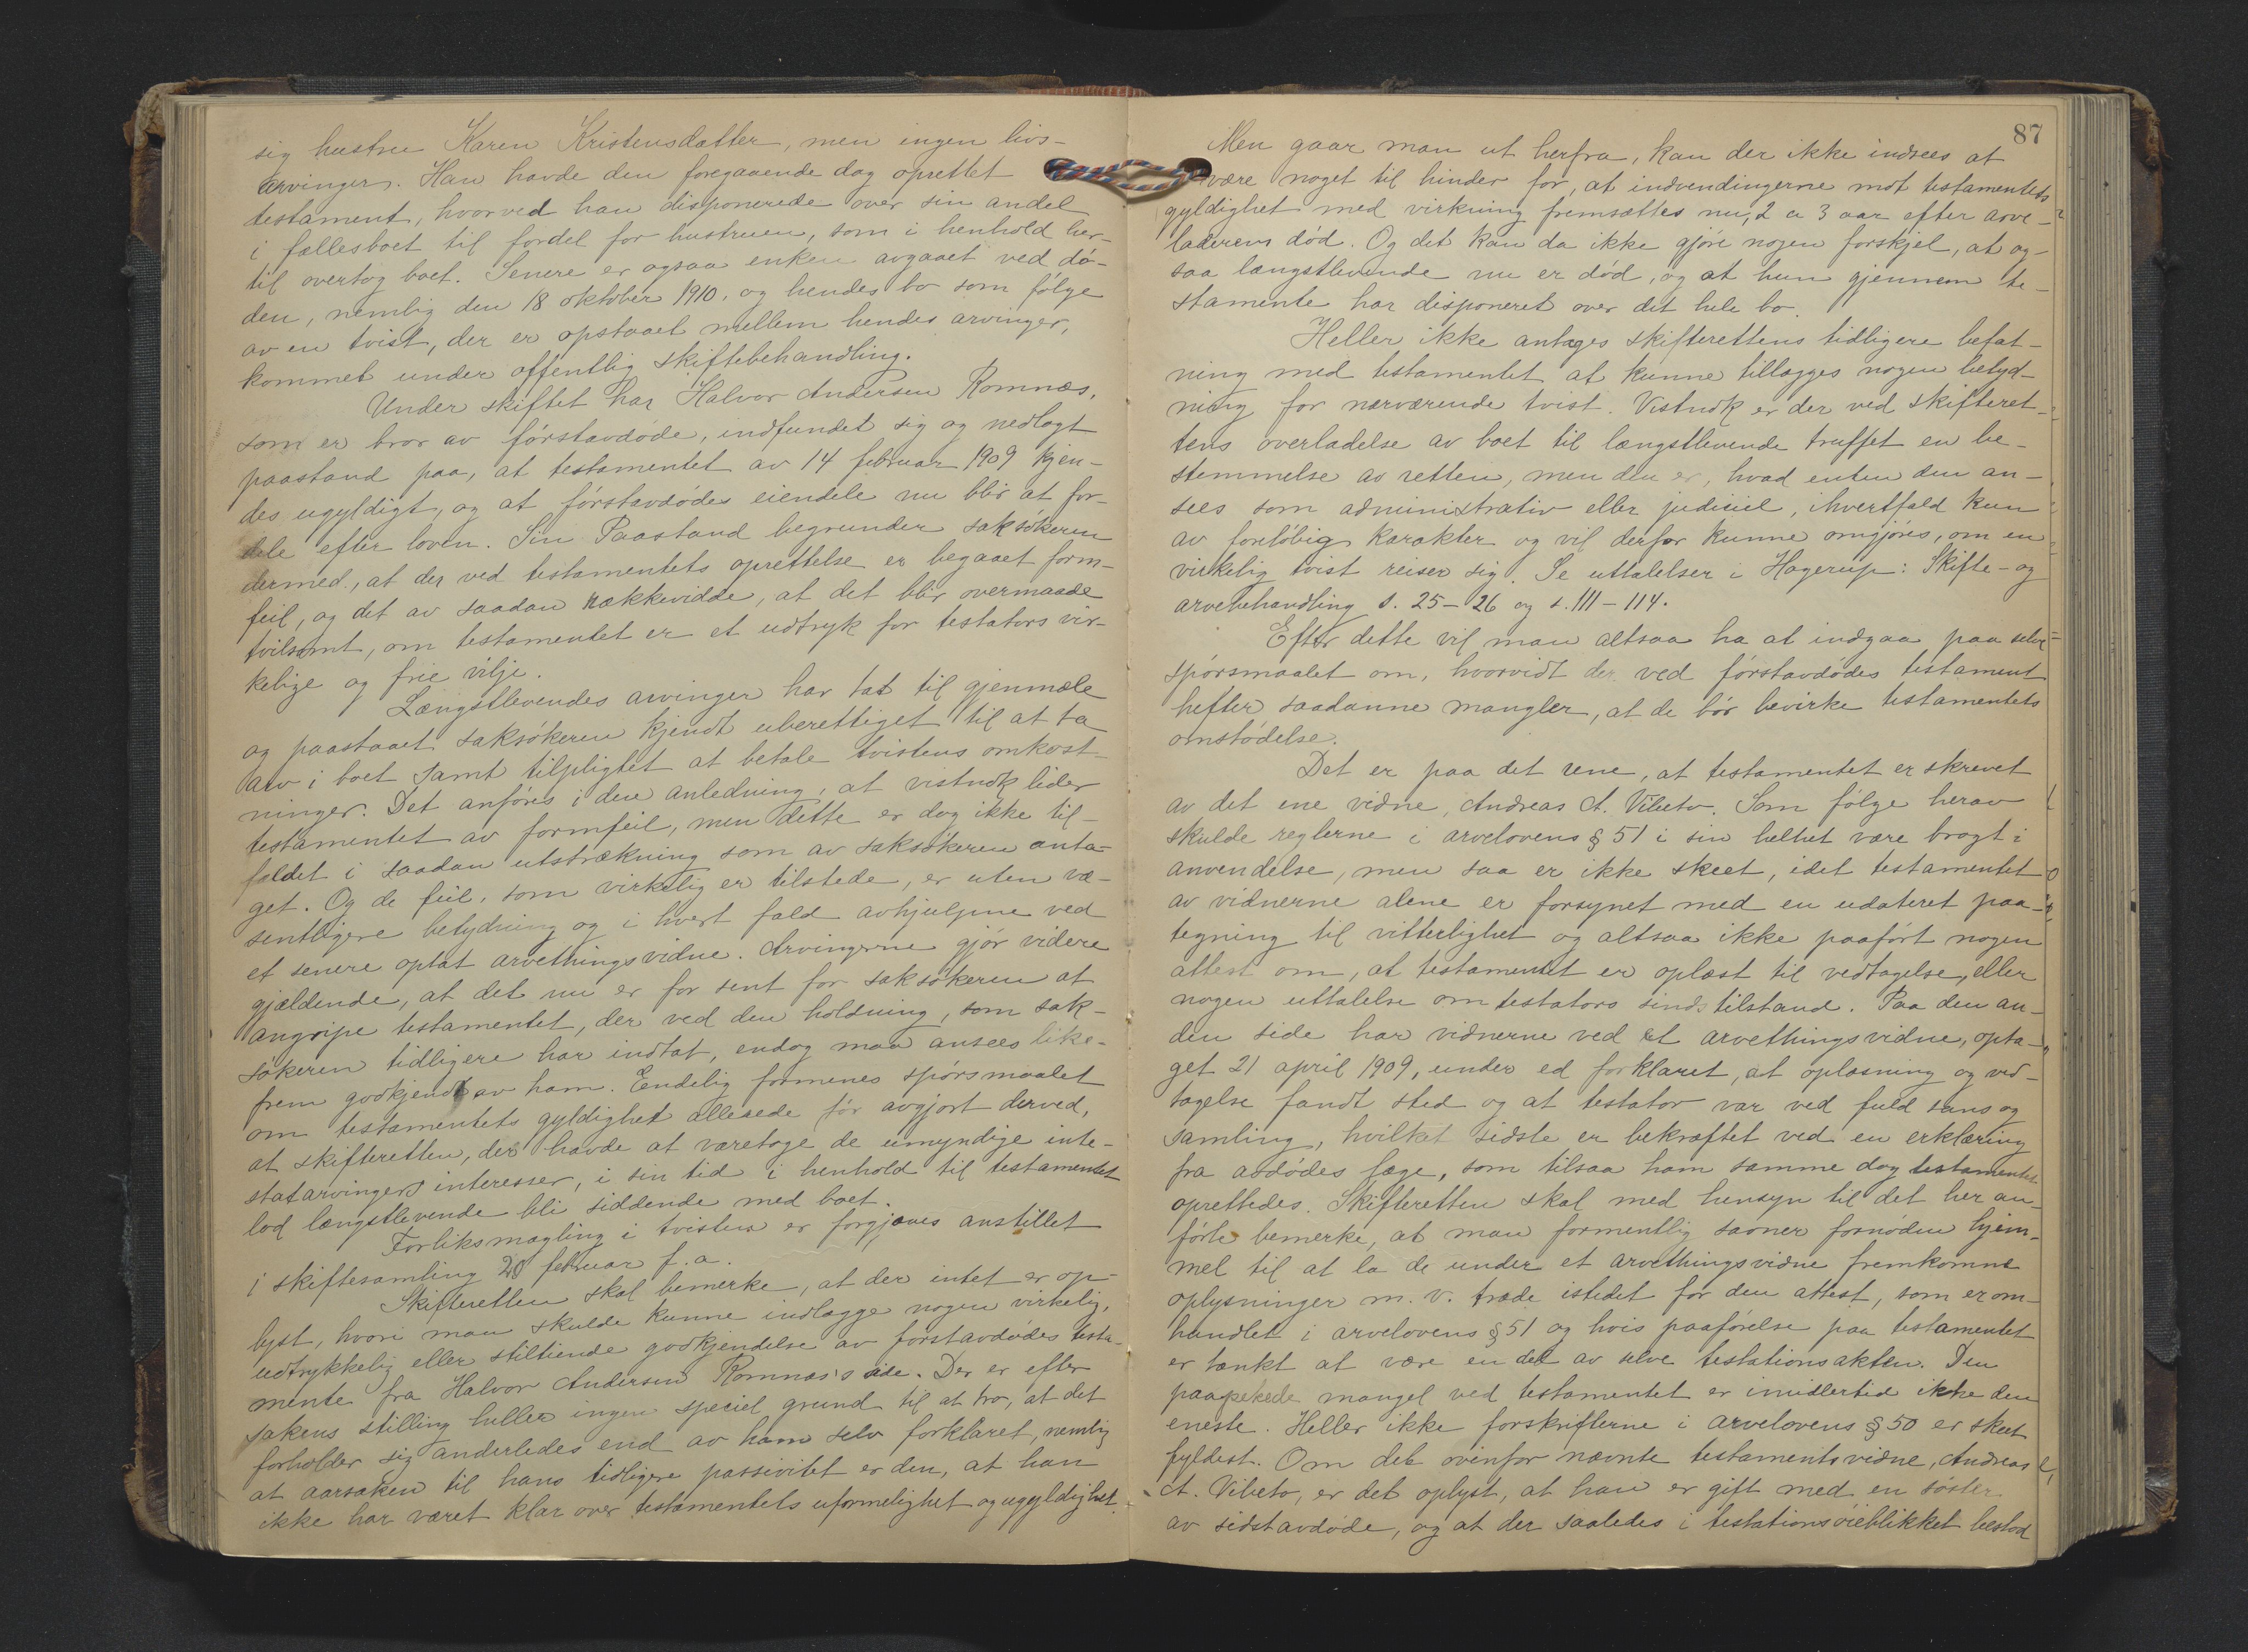 sig hustru Karen Kristensdatter, men ingen livs-
arvinger. Han havde den foregaaende dag oprettet
testament, hvorved han disponerede over sin andel
i fællesboet til fordel for hustruen, som i henhold her-
til overtog boet. Senere er ogsaa enken avgaaet ved dö-
den, nemlig den 18 oktober 1910, og hendes bo som fölge
av en tvist, der er opstaaet mellem hendes arvinger,
kommet under offentlig skiftebehandling.
Under skiftet har Halvor Andersen Romnæs,
som er bror av förstavdöde, indfundet sig og nedlagt
paastand paa, at testamentet av 14 februar 1909 kjen-
des ugyldigt, og at förstavdödes eiendele nu blir at for-
dele efter loven. Sin Paastand begrunder saksökeren
dermed, at der ved testamentets oprettelse er begaaet form-
feil, og det av saadan rækkevidde, at det blir overmaade
tvilsomt, om testamentet er et udtryk for testators vir-
kelige og frie vilje.
Længstlevendes arvinger har tat til gjenmæle
og paastaaet saksökeren kjendt uberettiget til at ta
arv i boet samt tilpligtet at betale tvistens omkost-
ninger. Det anföres i den anledning, at vistnok lider
testamentet av formfeil, men dette er dog ikke til-
faldet i saadan utstrækning som av saksökeren anta-
get. Og de feil, som virkelig er tilstede, er uten væ-
sentligere betydning og i hvert fald avhjulpne ved
et senere optat arvethingsvidne. Arvingerne gjör videre
gjældende, at det nu er for sent for saksökeren at
angripe testamentet, der ved den holdning, som sak-
sökeren tidligere har indtat, endog maa ansees like-
frem godkjendt av ham. Eendelig formenes spörsmaalet
om testamentets gyldighet allerede för avgjort derved,
at skifteretten, der havde at varetage de umyndige inte-
statarvingers interesser, i sin tid i henhold til testamentet
lod længstlevende bli siddende med boet.
Forliksmægling i tvisten er forgjæves anstillet
i skiftesamling 20 februar f. a.
Skifteretten skal bemerke, at der intet er op-
lyst, hvori man skulde kunne indlægge nogen virkelig,
udtrykkelig eller stiltiende godkjendelse av förstavdödes testa-
mente fra Halvor Andersen Romnæs's side. Der er efter
sakens stilling heller ingen speciel grund til at tro, at det
forholder sig anderledes end av ham selv forklaret, nemlig
at aarsaken til hans tidligere passivitet er den, at han
ikke har været klar over testamentets uformelighet og ugyldighet.
87
Men gaar man ut herfra, kan der ikke indsees at
være noget til hinder for, at indvendingerne mot testamentets
gyldighet med virkning fremsættes nu, 2 a 3 aar efter arve-
laderens död. Og det kan da ikke gjöre nogen forskjel, at og-
saa længstlevende nu er död, og at hun gjennem te-
stamente har disponeret over det hele bo.
Heller ikke antages skifterettens tidligere befat-
ning med testamentet at kunne tillægges nogen betyd-
ning for nærværende tvist. Vistnok er der ved skifteret-
tens overladelse av boet til længstlevende truffet en be-
stemmelse av retten, men den er, hvad enten den an-
sees som administrativ eller judiciel, ihvertfald kun
av forelöbig karakter og vil derfor kunne omgjöres, om en
virkelig tvist reiser sig. Se uttalelser i Hagerup: Skifte- og
arvebehandling s. 25-26 og s. 111-114.
Efter dette vil man altsaa ha at indgaa paa selve
spörsmaalet om, hvorvidt der ved förstavdödes testament
hefter saadanne mangler, at de bör bevirke testamentets
omstödelse.
Det er paa det rene, at testamentet er skrevet
av det ene vidne, Andreas A. Vibeto. Som fölge herav
skulde reglerne i arvelovens § 51 i sin helhet være bragt i
anvendelse, men saa er ikke skeet, idet testamentet
av vidnerne alene er forsynet med en udateret paa-
tegning til vitterlighet og altsaa ikke paafört nogen
attest om, at testamentet er oplæst til vedtagelse, eller
nogen uttalelse om testators sindstilstand. Paa den an-
den side har vidnerne ved et arvethingsvidne, opta-
get 21 april 1909, under ed forklaret, at oplæsning og ved-
tagelse fandt sted og at testator var ved fuld sans og
samling, hvilket sidste er bekræftet ved en erklæring
fra avdödes læge, som tilsaa ham samme dag testamentet
oprettedes. Skifteretten skal med hensyn til det her an-
förte bemerke, at man formentlig savner fornöden hjem-
mel til at la de under et arvethingsvidne fremkomne
oplysninger m. v. træde istedet for den attest, som er om-
handlet i arvelovens § 51 og hvis paaförelse paa testamentet
er tænkt at være en del av selve testationsakten. Den
paapekede mangel ved testamentet er imidlertid ikke den
eneste. Heller ikke forskrifterne i arvelovens § 50 er skeet
fyldest. Om det ovenfor nævnte testamentsvidne, Andreas
A. Vibeto, er det oplyst, at han er gift med en söster
av sidstavdöde, og at der saaledes i testationsöieblikket bestod